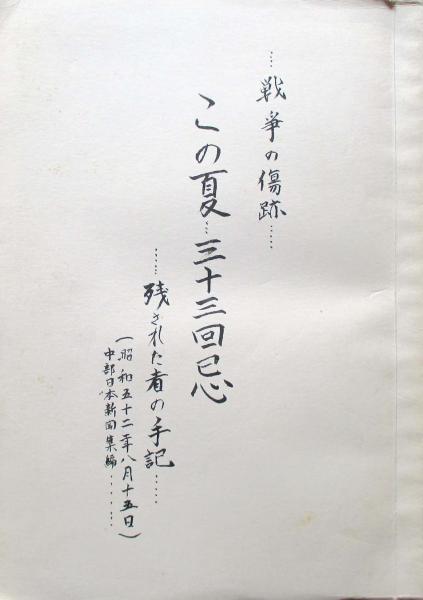 ……戦争の傷跡……
この夏…三十三回忌
……残された者の手記……
(昭和五十二年八月十五日)
中部日本新聞集編………